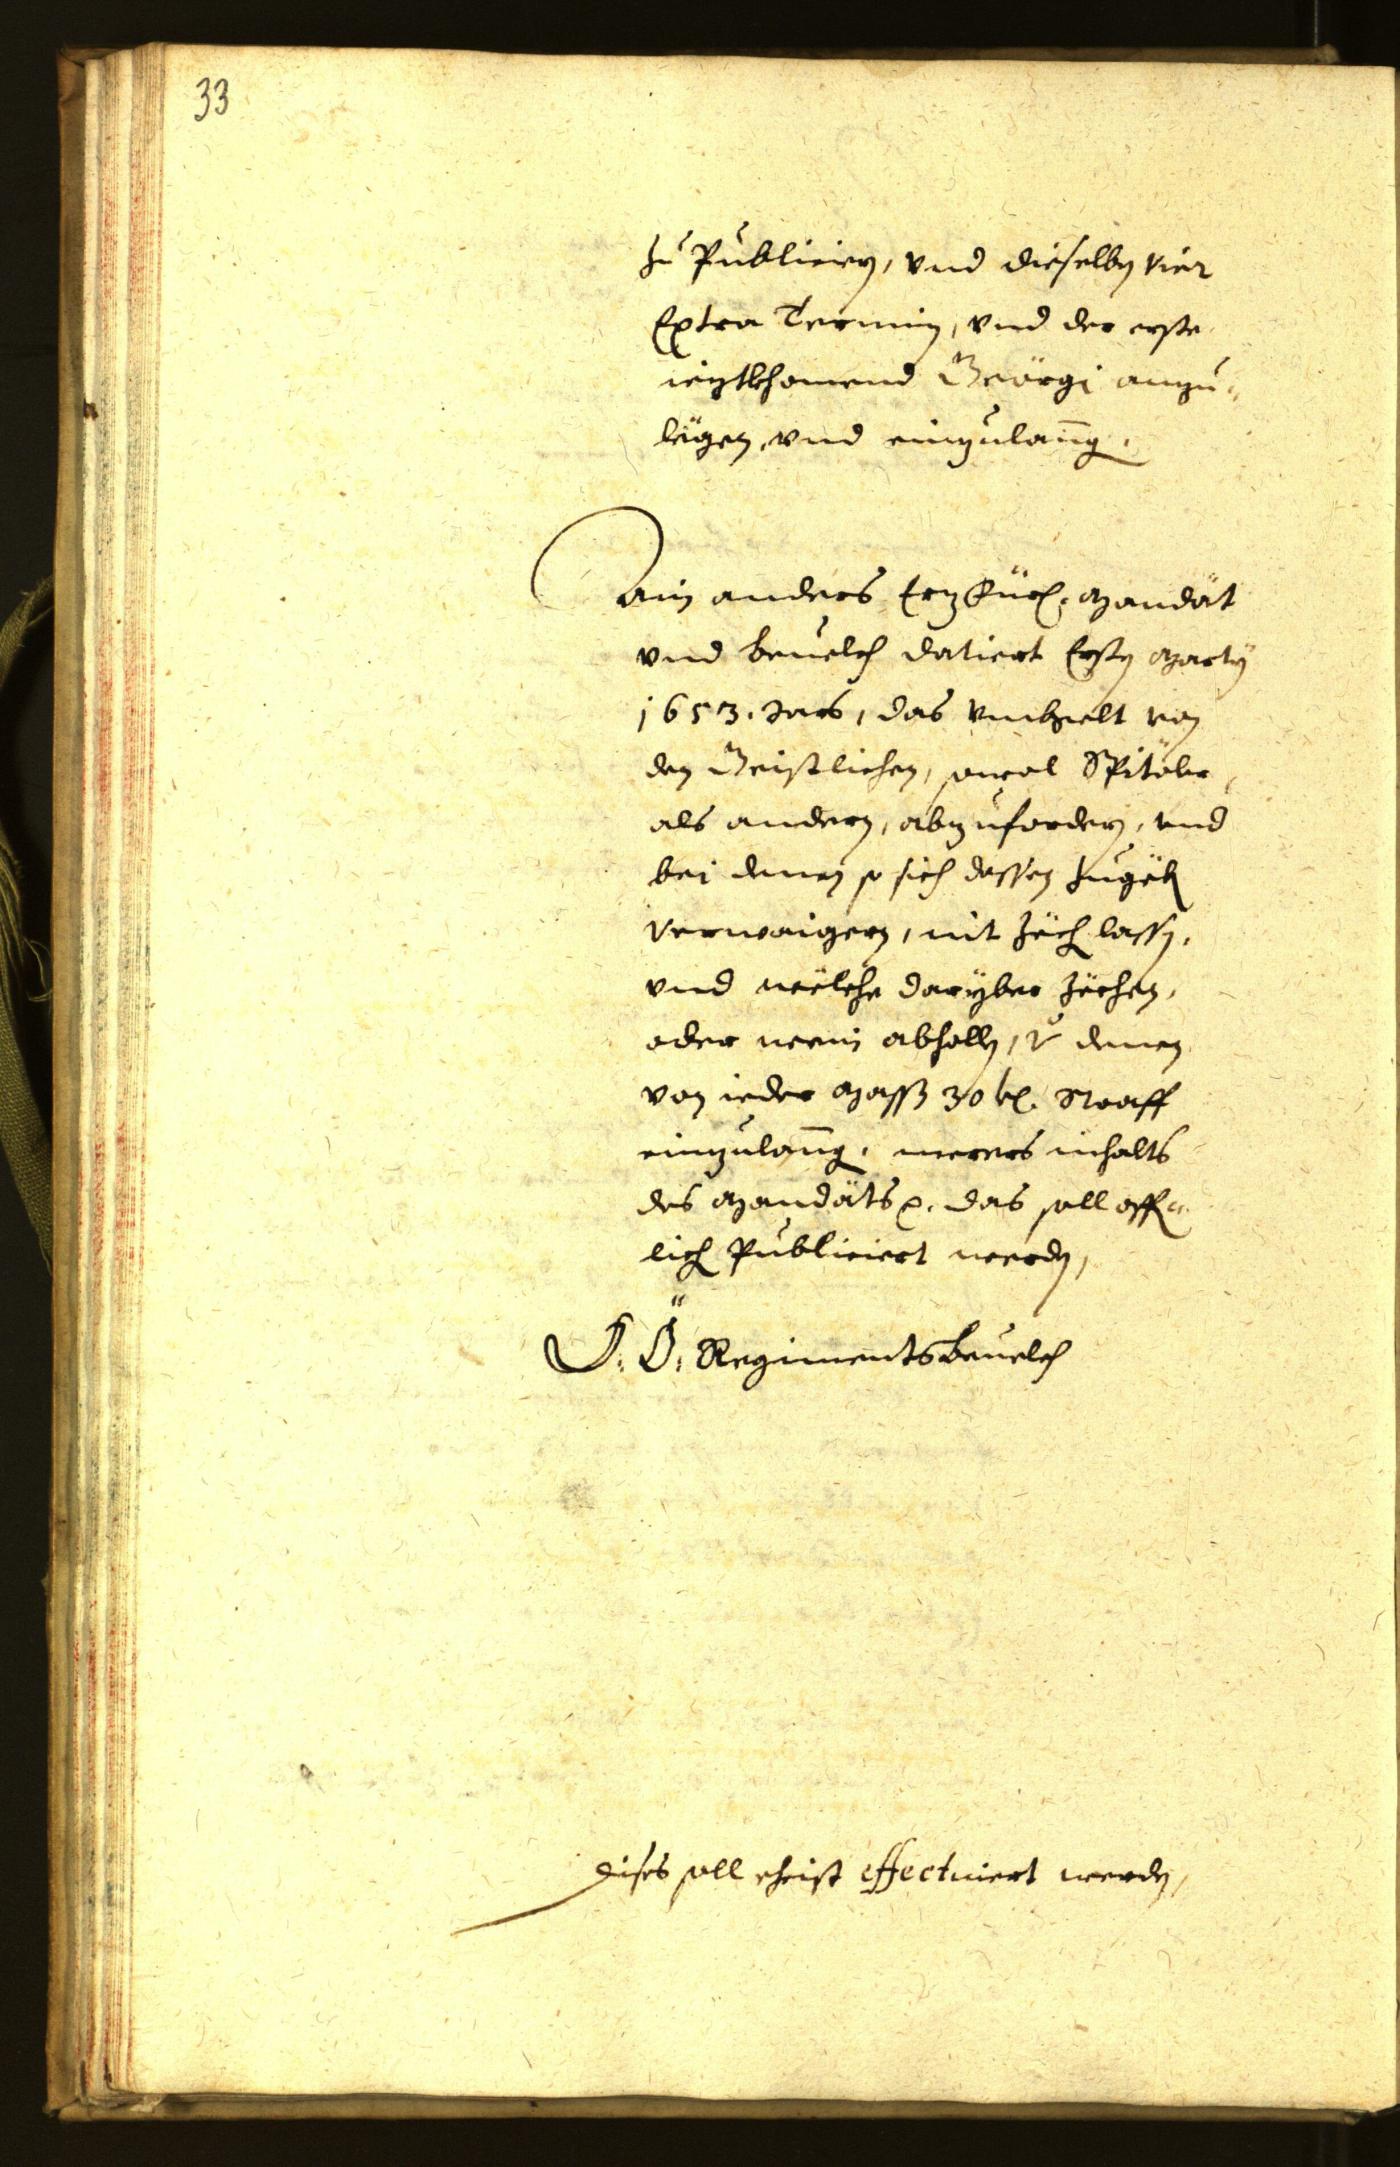 33
zu Publiciern, vnd dieselben vier
Extra Termin, vnd der erste
ieztkhomend Geörgi anzu-
legen, vnd einzulanng.
Ain anders Erzfürl. Mandat
vnd beuelch datiert Ersten Marty
1653. Jars, das vmbgelt von
den Geistlichen, sowol Spitäler
als andern, abzufordern, vnd
bei denen so sich dessen zugeben
verwaigern, nit Zöch lassen,
vnd welche darüber Zöchen,
oder wein abhollen, v denen
von ieder Mass 30 kr. Straff
einzulanng, merers inhalts
des Mandats p. das soll offent-
lich Publiciert werden,
O: Ö: Regimentsbeuelch
dises soll eheist effectuiert werden,